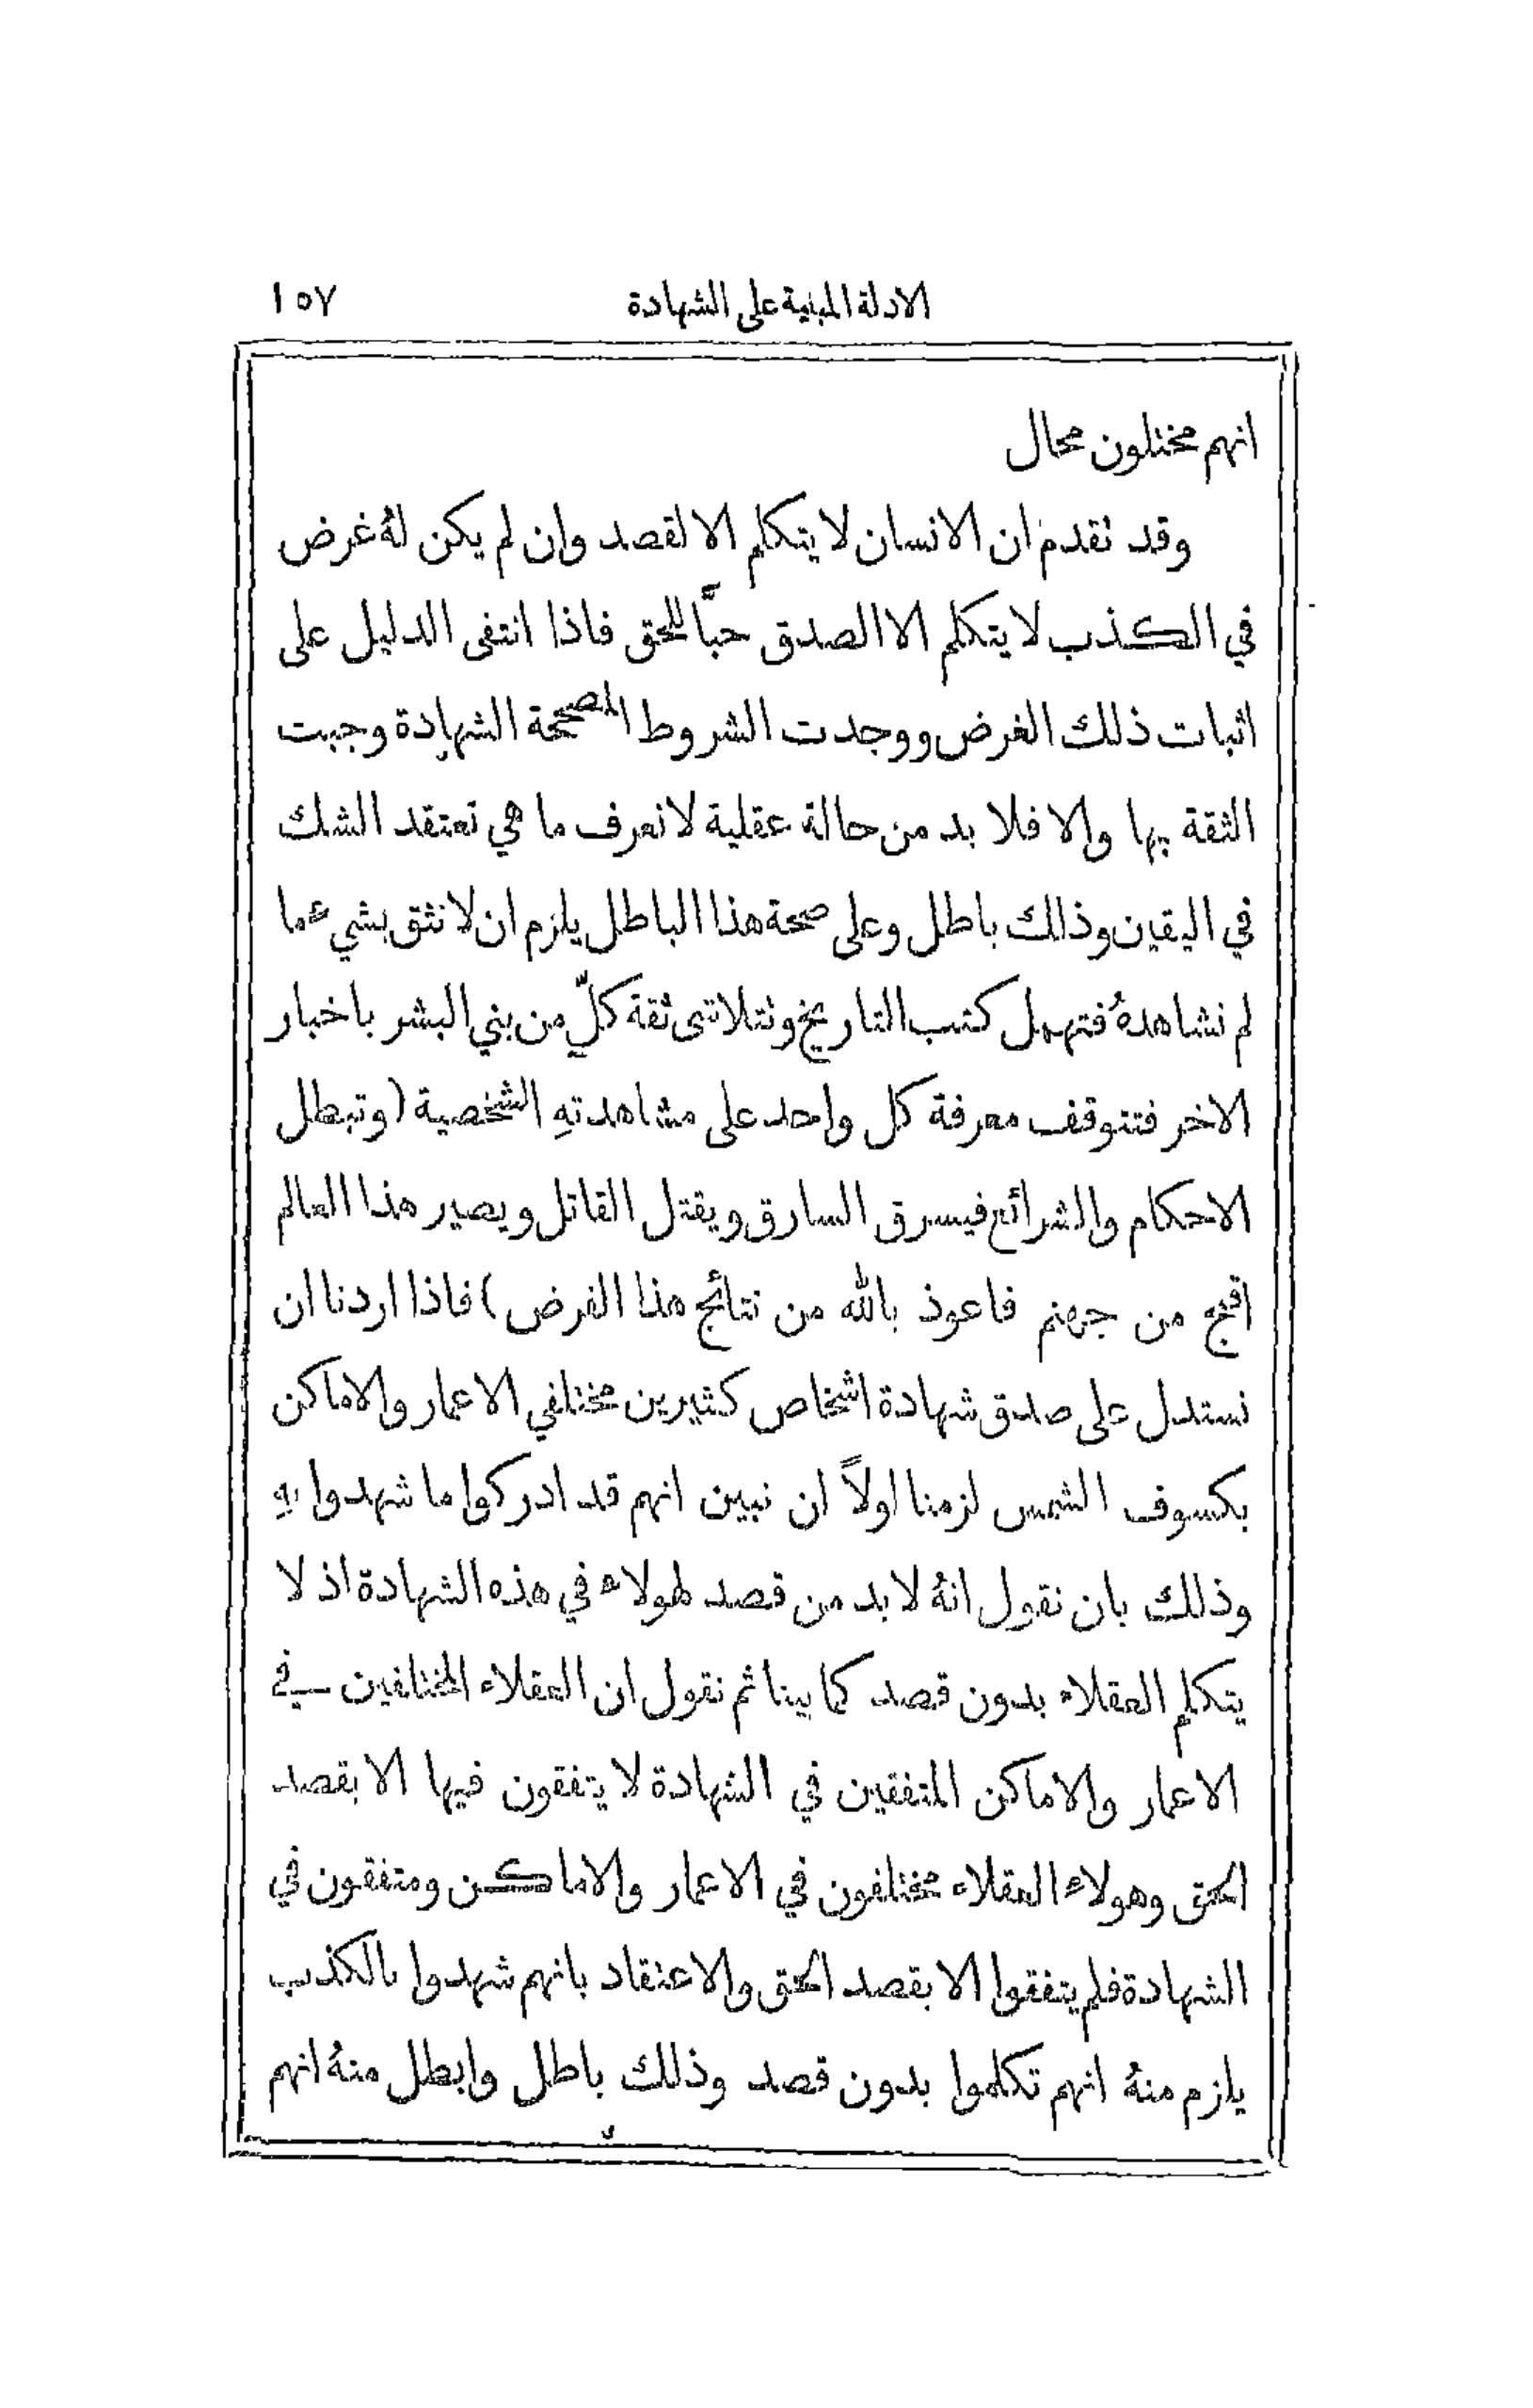 الادلة المبنية على الشهادة ١٥٧
انهم مختلون محال
وقد تقدم ان الانسان لا يتكلم الا لقصد وان لم يكن لهُ غرض
في الكذب لا يتكلم الا الصدق حبًّا للحق فاذا انتفى الدليل على
اثبات ذلك الغرض ووجدت الشروط المصححة الشهادة وجبت
الثقة بها والا فلا بد من حالة عقلية لا نعرف ما هي تعتقد الشك
في اليقين وذلك باطل وعلى صحة هذا الباطل يلزم ان لا نثق بشيءٍ ما
لم نشاهدهُ فتهمل كتب التاريخ وتتلاشى ثقة كلٍّ من بني البشر باخبار
الاخر فتتوقف معرفة كل واحد على مشاهدتهِ الشخصية (وتبطل
الاحكام والشرائع فيسرق السارق ويقتل القاتل ويصير هذا العالم
اقبح من جهنم فاعوذ بالله من نتائج هذا الفرض) فاذا اردنا ان
نستدل على صدق شهادة اشخاص كثيرين مختلفي الاعمار والاماكن
بكسوف الشمس لزمنا اولاً ان نبين انهم قد ادركوا ما شهدوا بهِ
وذلك بان نقول انهُ لا بد من قصد لهولاء في هذه الشهادة اذ لا
يتكلم العقلاء بدون قصد كما بينا ثم نقول ان العقلاء المختلفين في
الاعمار والاماكن المتفقين في الشهادة لا يتفقون فيها الا بقصد
الحق وهولاء العقلاء مختلفون في الاعمار والاماكن ومتفقون في
الشهادة فلم يتفقوا الا بقصد الحق والاعتقاد بانهم شهدوا بالكذب
يلزم منهُ انهم تكلموا بدون قصد وذلك باطل وابطل منهُ انهم